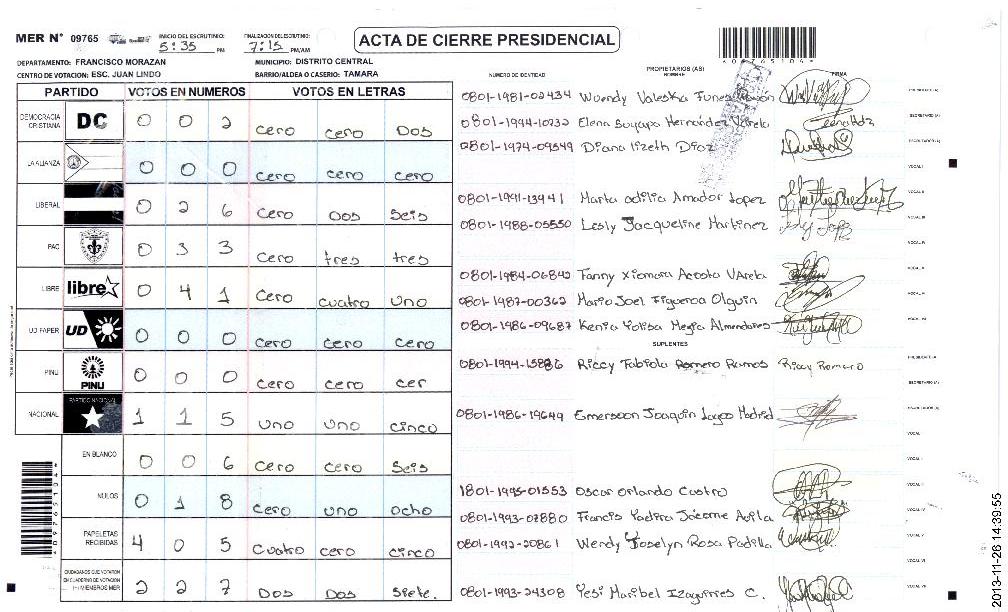 MER N° 09765
INICIO DEL ESCRUTINIO: 5:35 PM
FINALIZACION DEL ESCRUTINIO: 7:15 PM/AM
ACTA DE CIERRE PRESIDENCIAL
*09765104*
DEPARTAMENTO: FRANCISCO MORAZAN
MUNICIPIO: DISTRITO CENTRAL
CENTRO DE VOTACION: ESC. JUAN LINDO
BARRIO/ALDEA O CASERIO: TAMARA
PARTIDO VOTOS EN NUMEROS VOTOS EN LETRAS
DEMOCRACIA CRISTIANA DC 0 0 2 cero cero Dos
LA ALIANZA 0 0 0 cero cero cero
LIBERAL 0 2 6 cero Dos Seis
PAC 0 3 3 cero tres tres
LIBRE libre 0 4 1 cero cuatro uno
UD FAPER UD 0 0 0 cero cero cero
PINU PINU 0 0 0 cero cero cer
NACIONAL PARTIDO NACIONAL 1 1 5 uno uno cinco
EN BLANCO 0 0 6 cero cero Seis
NULOS 0 1 8 cero uno ocho
PAPELETAS RECIBIDAS 4 0 5 cuatro cero cinco
CIUDADANOS QUE VOTARON EN CUADERNO DE VOTACION (+) MIEMBROS MER 2 2 7 Dos Dos Siete.
NUMERO DE IDENTIDAD PROPIETARIOS (AS) NOMBRE FIRMA
0801-1981-02434 Wuendy Valeska Funes PRESIDENTE(A)
0801-1994-10732 Elena Suyapa Hernández Varela SECRETARIO(A)
0801-1974-09549 Diana lizeth Díaz ESCRUTADOR(A)
VOCAL I
0801-1991-13941 Marta odilia Amador Lopez VOCAL II
0801-1988-05550 Lesly Jacqueline Martinez VOCAL III
VOCAL IV
0801-1984-06840 Fanny Xiomara Acosta Varela VOCAL V
0801-1987-00362 Mario Joel Figueroa Olguin VOCAL VI
0801-1986-09687 Kenia Yolisa Megia Almendares VOCAL VII
SUPLENTES
0801-1994-15886 Riccy Fabiola Romero Ramos Riccy Romero PRESIDENTE(A)
SECRETARIO(A)
0801-1986-19649 Emerson Joaquin Lagos Madrid ESCRUTADOR(A)
VOCAL I
VOCAL II
1801-1995-01553 Oscar Orlando Castro
0801-1993-07880 Francis Yadira Jácome Avila VOCAL IV
0801-1992-20861 Wendy Joselyn Rosa Padilla VOCAL V
VOCAL VI
0801-1993-24308 Yesi Maribel Izaguirres C. VOCAL VII
*09765104*
2013-11-26 14:39:55